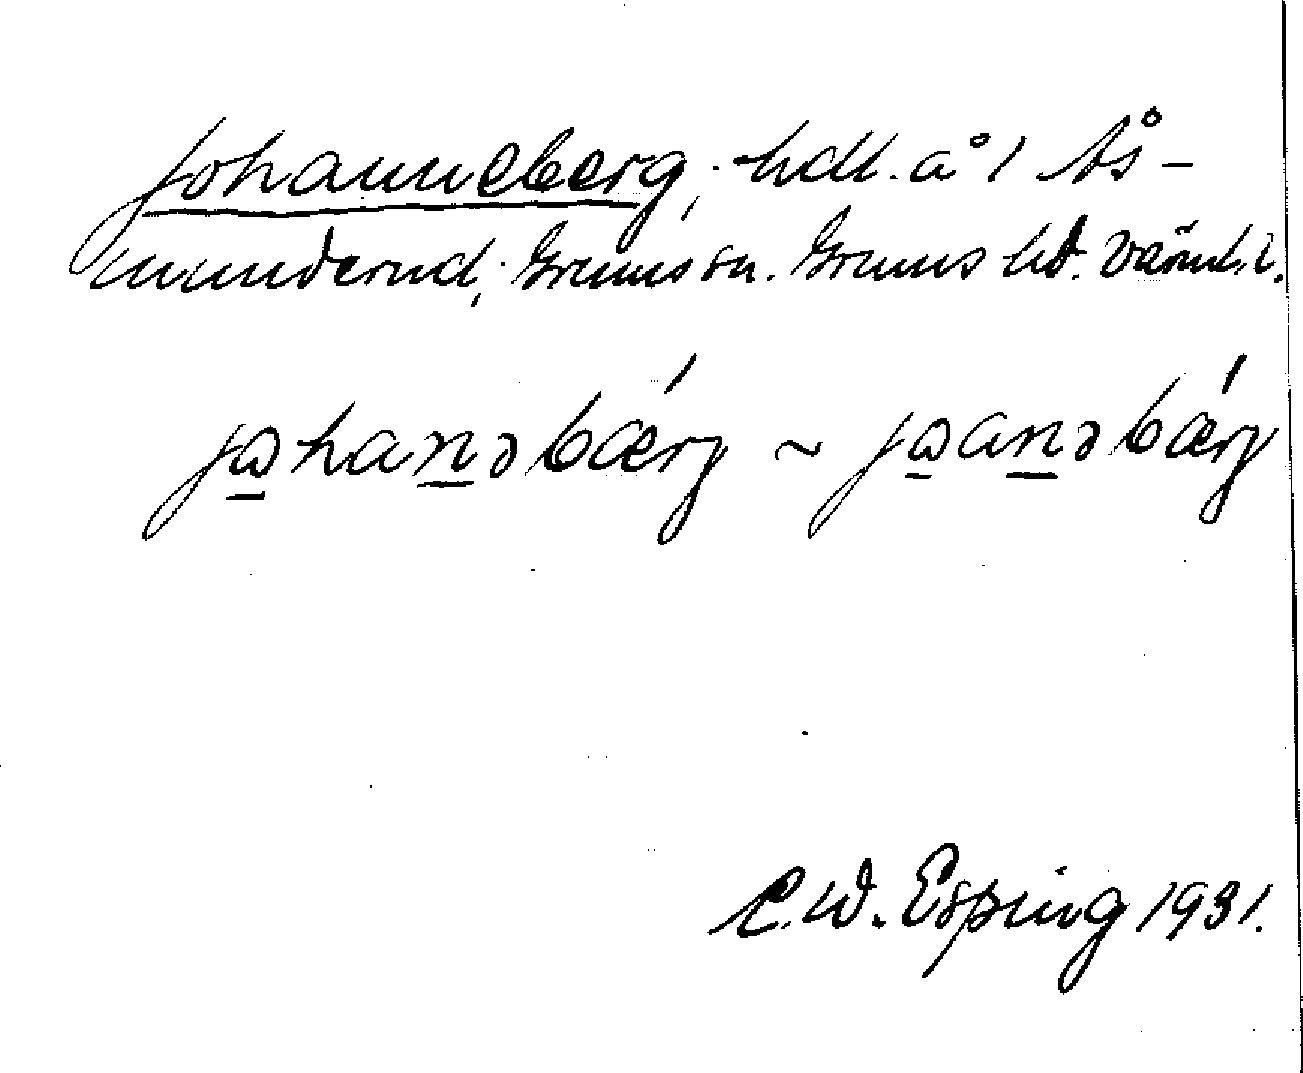 Johanneberg; hdl. å 1 Ås-
munderud; Grums sn. Grums hd. Värml. l.
jωhanəbærj ~ jωanəbærj
C.W. Esping 1931.